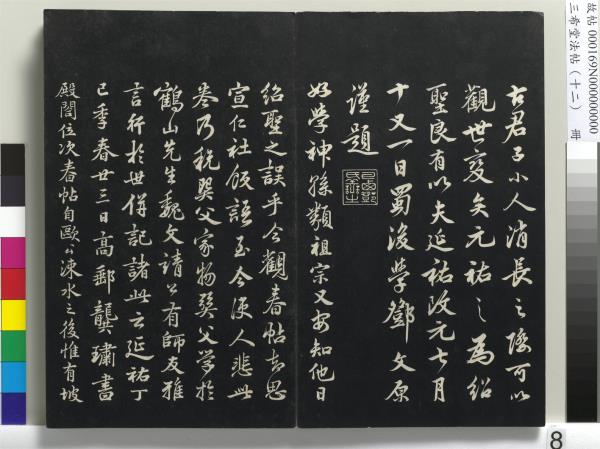 古君子小人消長之際可以
觀世變矣元祐之為紹
聖良有以夫延祐改元七月
十又一日蜀後學鄧文原
謹題
好學神孫類祖宗又安知他日
紹聖之誤乎今觀春帖去思
宣仁社飯語至今使人悲此
卷乃稅巽父家物巽父學於
鶴山先生魏文靖公有師友雅
言行於世倂記諸此云延祐丁
巳季春廿三日高郵龔璛書
殿閣住次春帖自歐公涑水之後惟有坡
故帖 000169N000000000
三希堂法帖（十二） 冊
8